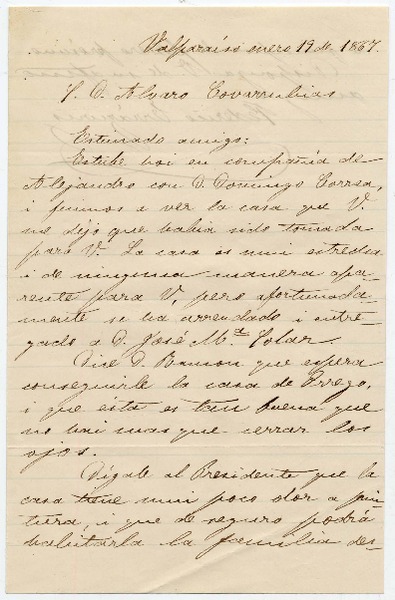 Valparaíso enero 19 de 1867.
S. D. Alvaro Covarrubias
Estimado amigo:
Estube hoi en compañia de
Alejandro con D. Domingo Correa,
i fuimos a ver la casa que V.
me dijo que habia sido tomada
para V. La casa es mui estrecha
i de ninguna manera apa-
rente para V, pero afortunada-
mente se ha arrendado i entre-
gado a D. José Ma. Solar
Dice D. Ramon que espera
conseguirle la casa de Orrego,
i que esta es tan buena que
no hai mas que cerrar los
ojos.
Dígale al Presidente que la
casa tiene mui poco olor a pin-
tura, i que de seguro podrá
habitarla la familia des-